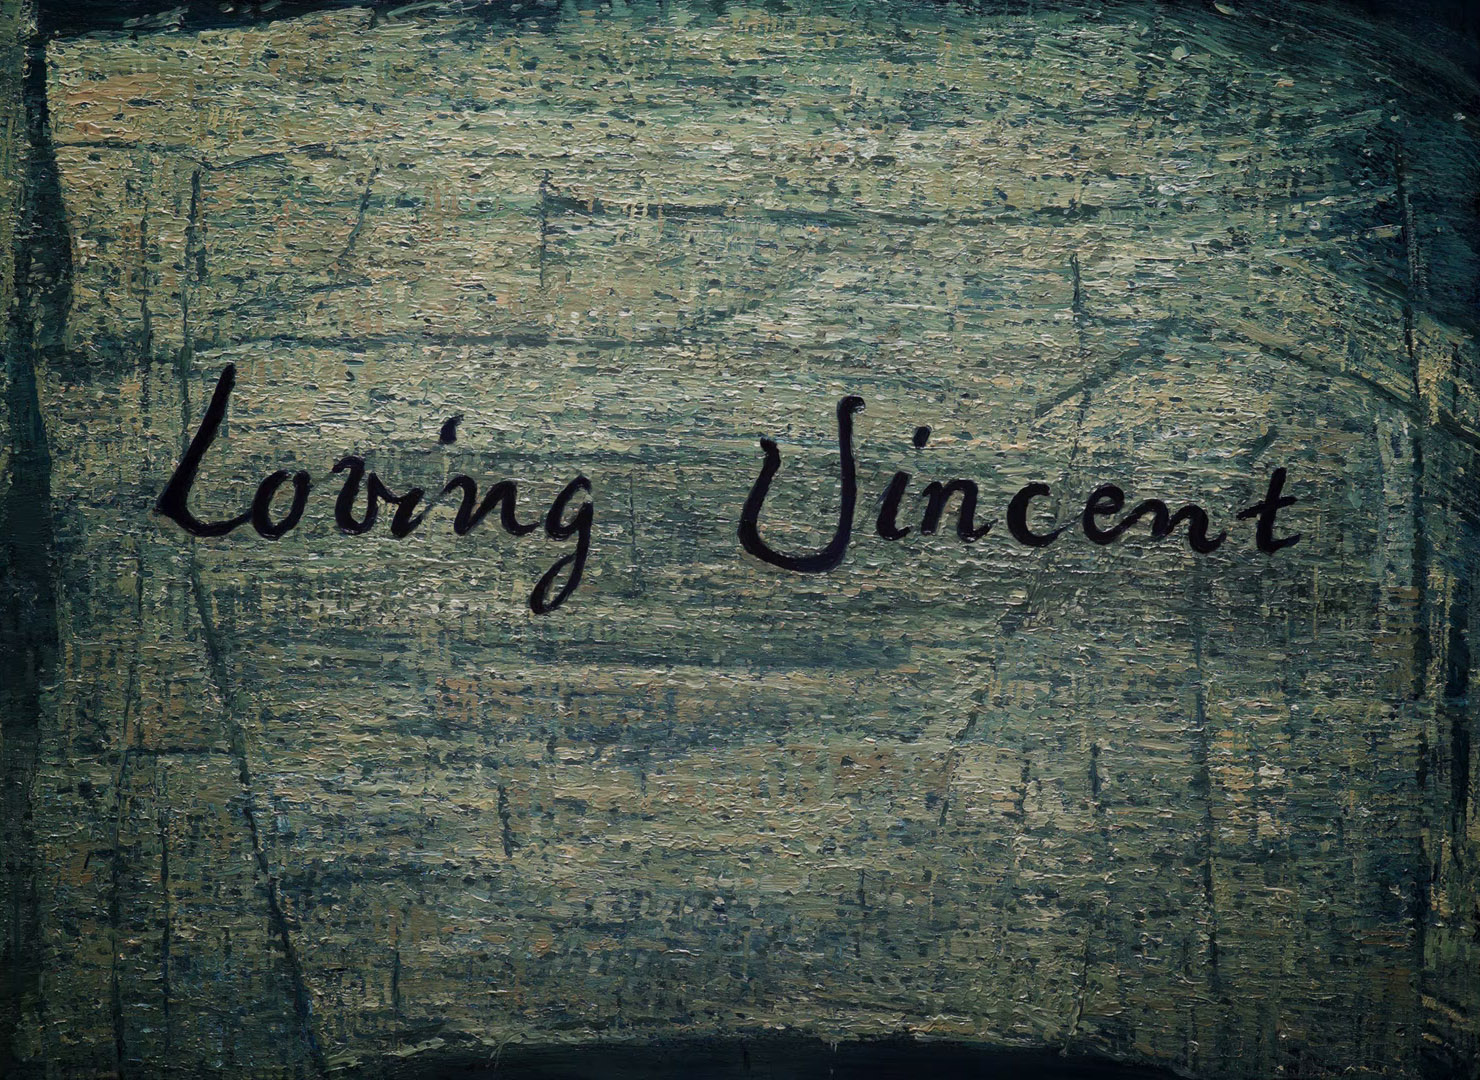 Loving Vincent